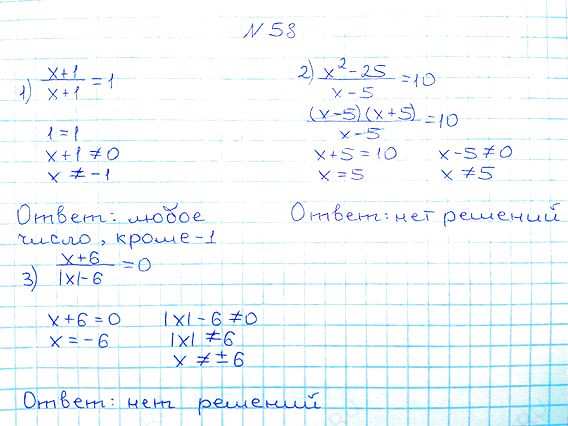 N 58
1) x+1/x+1 = 1
1 = 1
x+1 ≠ 0
x ≠ -1
Ответ: любое
число, кроме -1
2) x² - 25/x - 5 = 10
(x-5)(x+5)/x-5 = 10
x+5 = 10 x-5 ≠ 0
x = 5 x ≠ 5
Ответ: нет решений
3) x+6/|x|-6 = 0
x+6 = 0 |x| - 6 ≠ 0
x = -6 |x| ≠ 6
x ≠ ±6
Ответ: нет решений